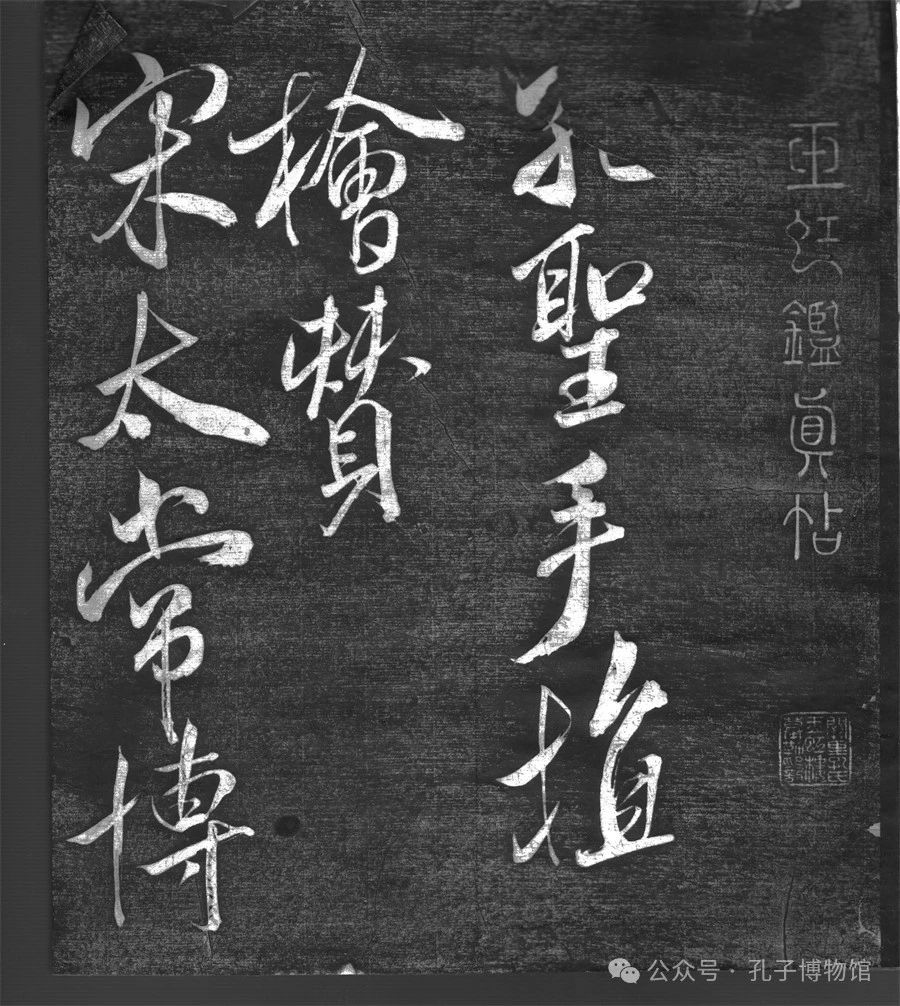 玉虹鑑真帖
孔聖手植
檜贊
宋太常博
公众号 · 孔子博物馆